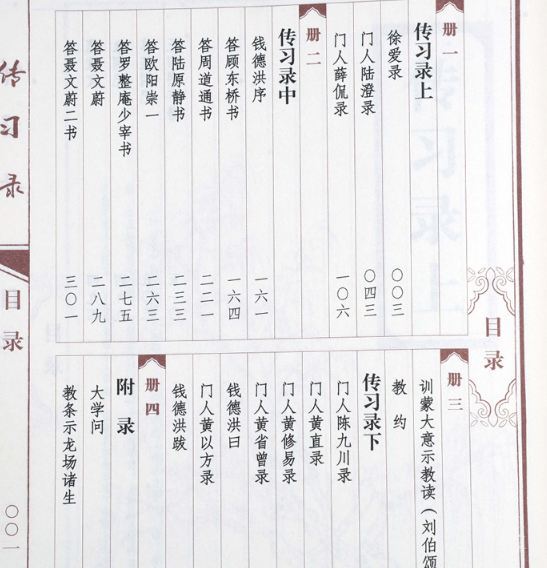 目录
册一
传习录上
徐爱录 〇〇三
门人陆澄录 〇四三
门人薛侃录 一〇六
册二
传习录中
钱德洪序 一六一
答顾东桥书 一六四
答周道通书 二二一
答陆原静书 二三三
答欧阳崇一 二六三
答罗整庵少宰书 二七五
答聂文蔚 二八九
答聂文蔚二书 三〇一
册三
训蒙大意示教读（刘伯颂
教约
传习录下
门人陈九川录
门人黄直录
门人黄修易录
门人黄省曾录
钱德洪曰
门人黄以方录
钱德洪跋
册四
附录
大学问
教条示龙场诸生
传习录
目录
〇〇一